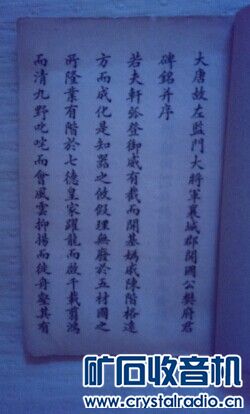 大唐故左監門大將軍襄城郡開國公樊府君
碑銘并序
若夫軒弧登御威有截而開基媯戚陳階格遠
方而成化是知器之攸假理無廢於五材國之
所隆業有階於七德皇家躍龍而啟千載剪鴻
而清九野叱咤而會風雲抑揚而徙舟壑其有
矿石收音机
www.crystalradio.cn